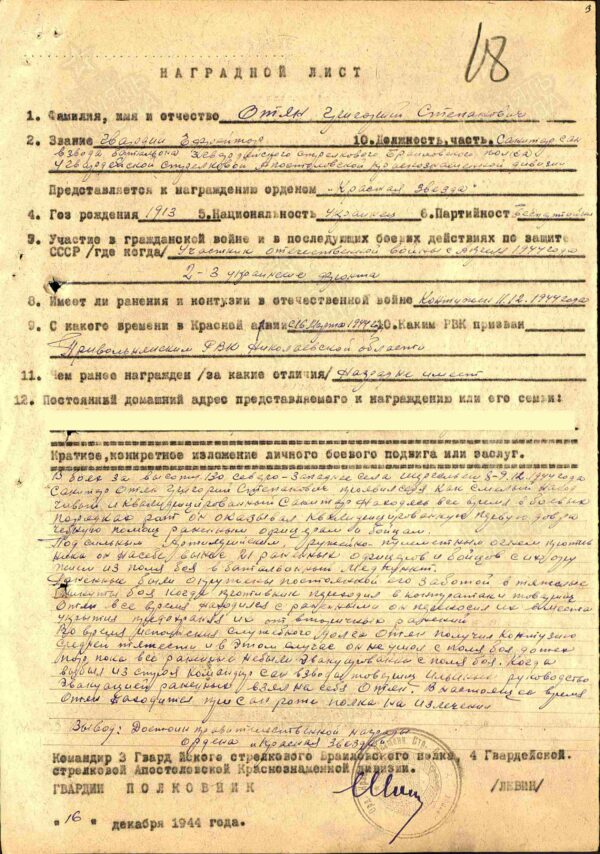 3
18
НАГРАДНОЙ ЛИСТ
1. Фамилия, имя и отчество Отян Григорий Степанович
2. Звание Гвардии Ефрейтор 10. Должность, часть. Санитар сан
взвода батальона 3 Гвардейского стрелкового Браиловского полка
4 Гвардейской Стрелковой Апостоловской Краснознаменной дивизии
Представляется к награждению орденом "Красная Звезда"
4. Гоз рождения 1913 5. Национальность украинец 6. Партийност беспартийный
3. Участие в гражданской войне и в последующих боевых действиях по защите
СССР /где когда/ Участник отечественной войны с 1944 года
2-3 украинские фронта
8. Имеет ли ранения и контузии в отечественной войне Контужен 12. 1944 года
9. С какого времени в Красной армии С 16 Марта 1944 г. 10. Каким РВК призван
Привольнянским РВК Николаевской области
11. Чем ранее награжден /за какие отличия/ Наград не имеет
12. Постоянный домашний адрес представляемого к награждению или его семьи:
Краткое, конкретное изложение личного боевого подвига или заслуг.
В боях за высоту северо-Западнее села 1944 года
Санитар Отян Григорий Степанович проявился как смелый
и квалифицированный санитар находясь все время в боевых
порядках рот он оказывал квалифицированную
помощь раненным офицерам и бойцам
Под сильным Артилерийским ружейно пулеметным огнем против
ника он на себе вынес 21 раненных офицеров и бойцов с их
из поля боя в батальонный Медпункт.
Раненные были окружены постоянной его заботой в тяжелые
минуты боя когда противник переходил в контратаки товарищ
Отян все время находился с раненными он переносил их в места
укрытия предохраняя их от вторичных ранений
Во время исполнения служебного долга Отян получил контузию
средней тяжести и в этом случае он не ушел с поля боя до тех
пор, пока все раненные не были эвакуированы с поля боя. Когда
выбыл из строя командир сан взвода товарищ руководство
эвакуацией раненных взял на себя Отян. В настоящее время
Отян находится при сан роте полка на излечении
Вывод: Достоин правительственной награды
Ордена "Красная Звезда"
Командир 3 Гвард йского стрелкового Браиловского полка, 4 Гвардейской.
стрелковой Апостоловской Краснознаменной дивизии.
ГВАРДИИ ПОЛКОВНИК /ЛЕВИН/
"16" декабря 1944 года.